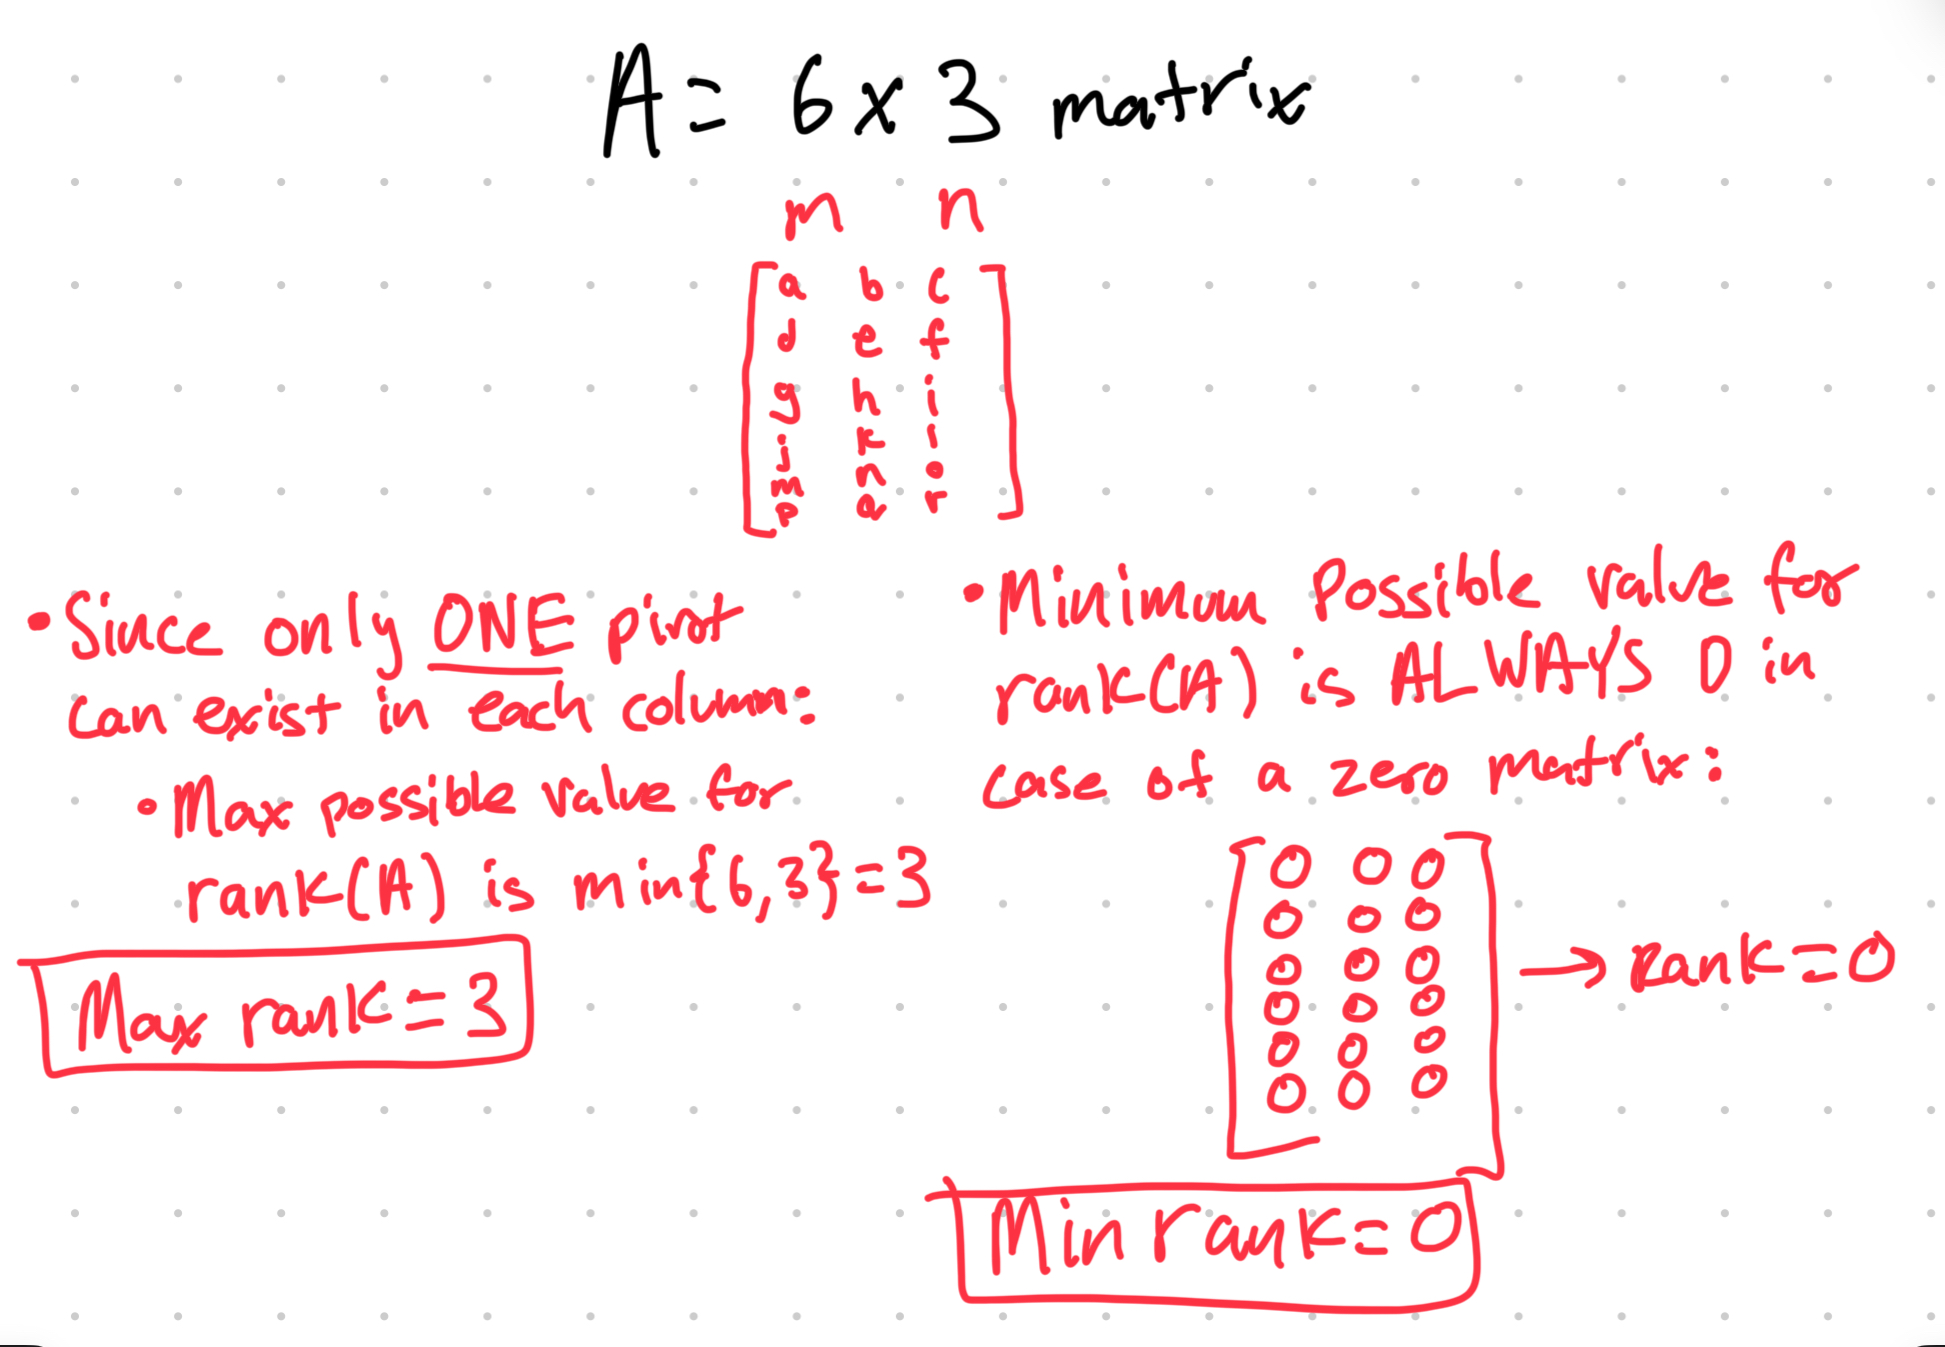 A = 6 x 3 matrix
m n
a b c
d e f
g h i
j k l
m n o
p q r
• Since only ONE pivot
can exist in each column:
• Max possible value for
rank(A) is min{6,3}=3
Max rank=3
• Minimum Possible value for
rank(A) is ALWAYS 0 in
case of a zero matrix:
0 0 0
0 0 0
0 0 0
0 0 0
0 0 0
0 0 0
→ Rank=0
Min rank=0